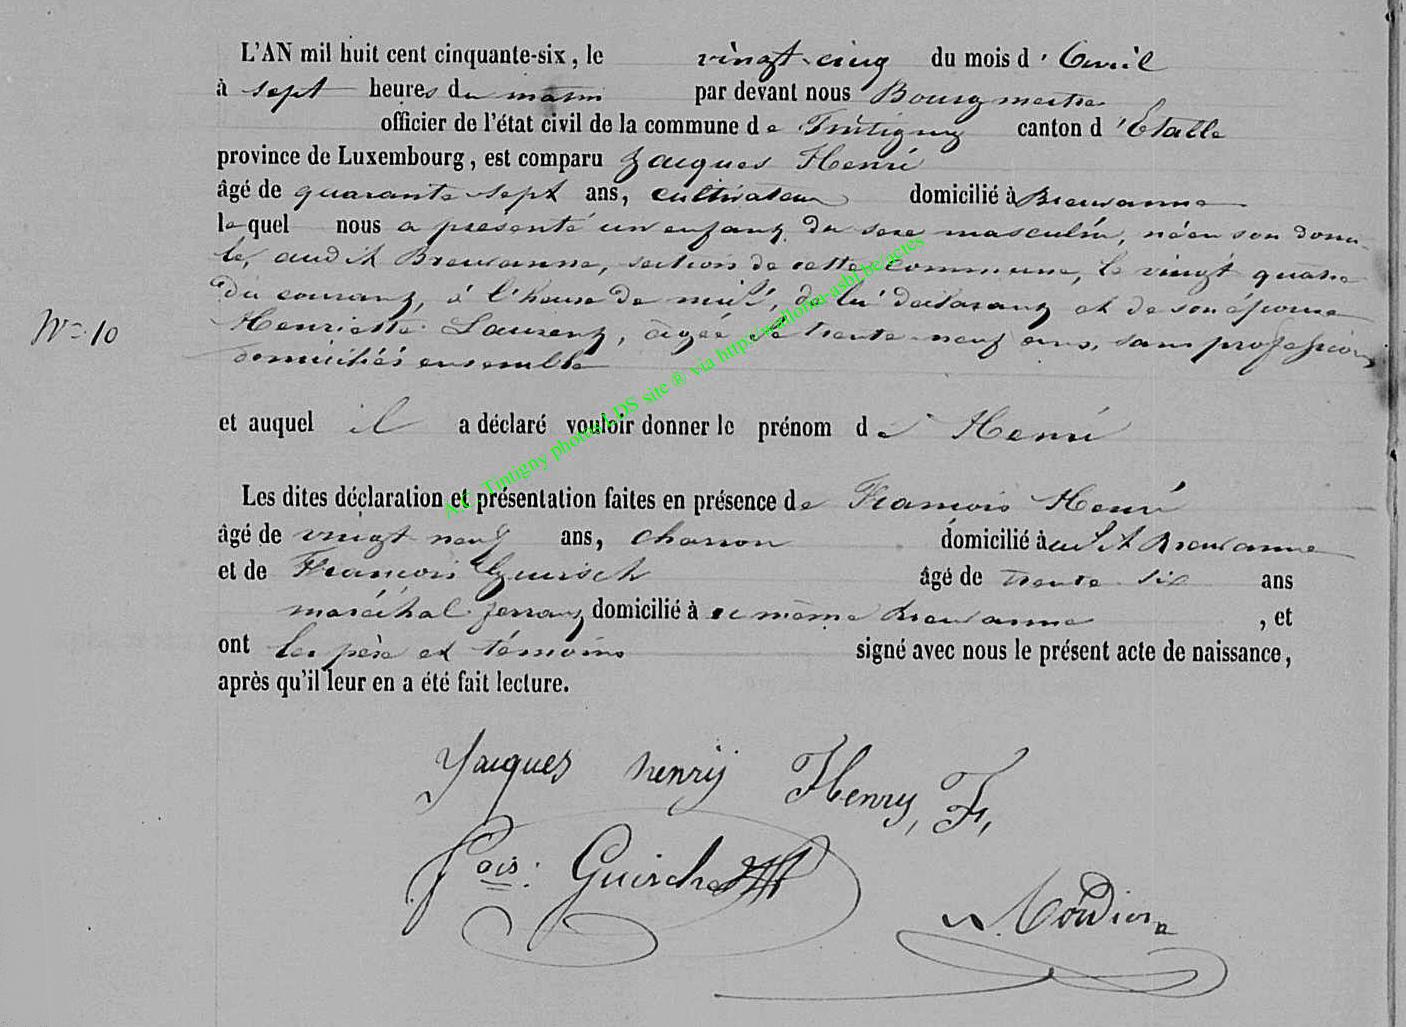 L'AN mil huit cent cinquante-six, le vingt-cinq du mois d'Avril
à sept heures du matin par devant nous Bourgmestre
officier de l'état civil de la commune de Tintigny canton d'Etalle
province de Luxembourg, est comparu Jacques Henri
âgé de quarante sept ans, cultivateur domicilié à Breuvanne
lequel nous a présenté un enfant du sexe masculin, né en son domi-
le, audit Breuvanne, section de cette commune, le vingt quatre
du courant, à l'heure de midi, de lui déclarant et de son épouse
Henriette Laurent, âgée de trente-neuf ans, sans profession,
domiciliés ensemble
N° 10
et auquel il a déclaré vouloir donner le prénom de Henri
Les dites déclaration et présentation faites en présence de François Henri
âgé de vingt neuf ans, charron domicilié audit Breuvanne
et de François Guirsch âgé de trente six ans
maréchal-ferrant domicilié à ce même Breuvanne, et
ont les père et témoins signé avec nous le présent acte de naissance,
après qu'il leur en a été fait lecture.
Jacques henrÿ Henry, F,
fçois: Guirsch
A.C. Tintigny photos LDS site ® via http://wallonia-asbl.be/actes